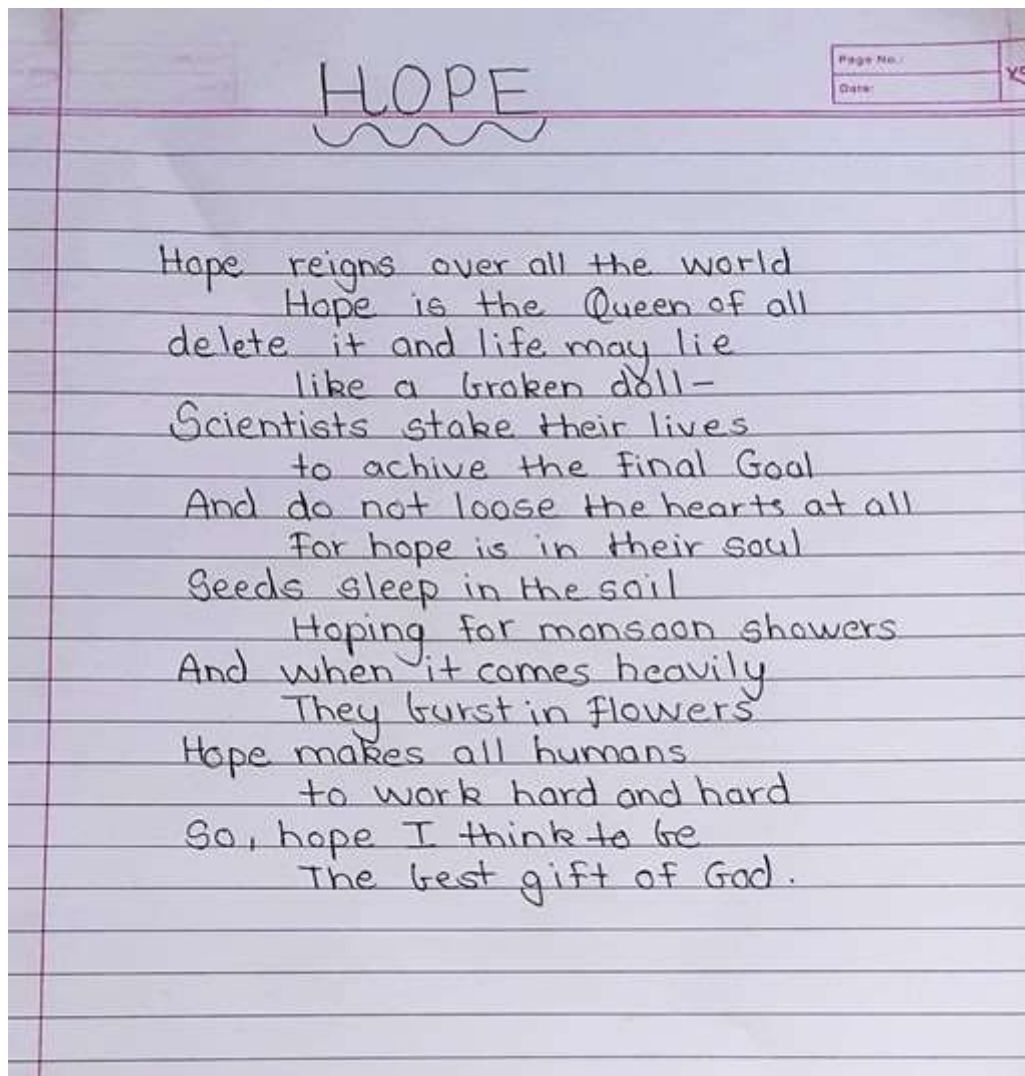 HOPE
Page No.:
Date:
Hope reigns over all the world
Hope is the Queen of all
delete it and life may lie
like a broken doll-
Scientists stake their lives
to achive the final Goal
And do not loose the hearts at all
for hope is in their soul
Seeds sleep in the soil
Hoping for monsoon showers
And when it comes heavily
They burst in flowers
Hope makes all humans
to work hard and hard
So, hope I think to be
The best gift of God.